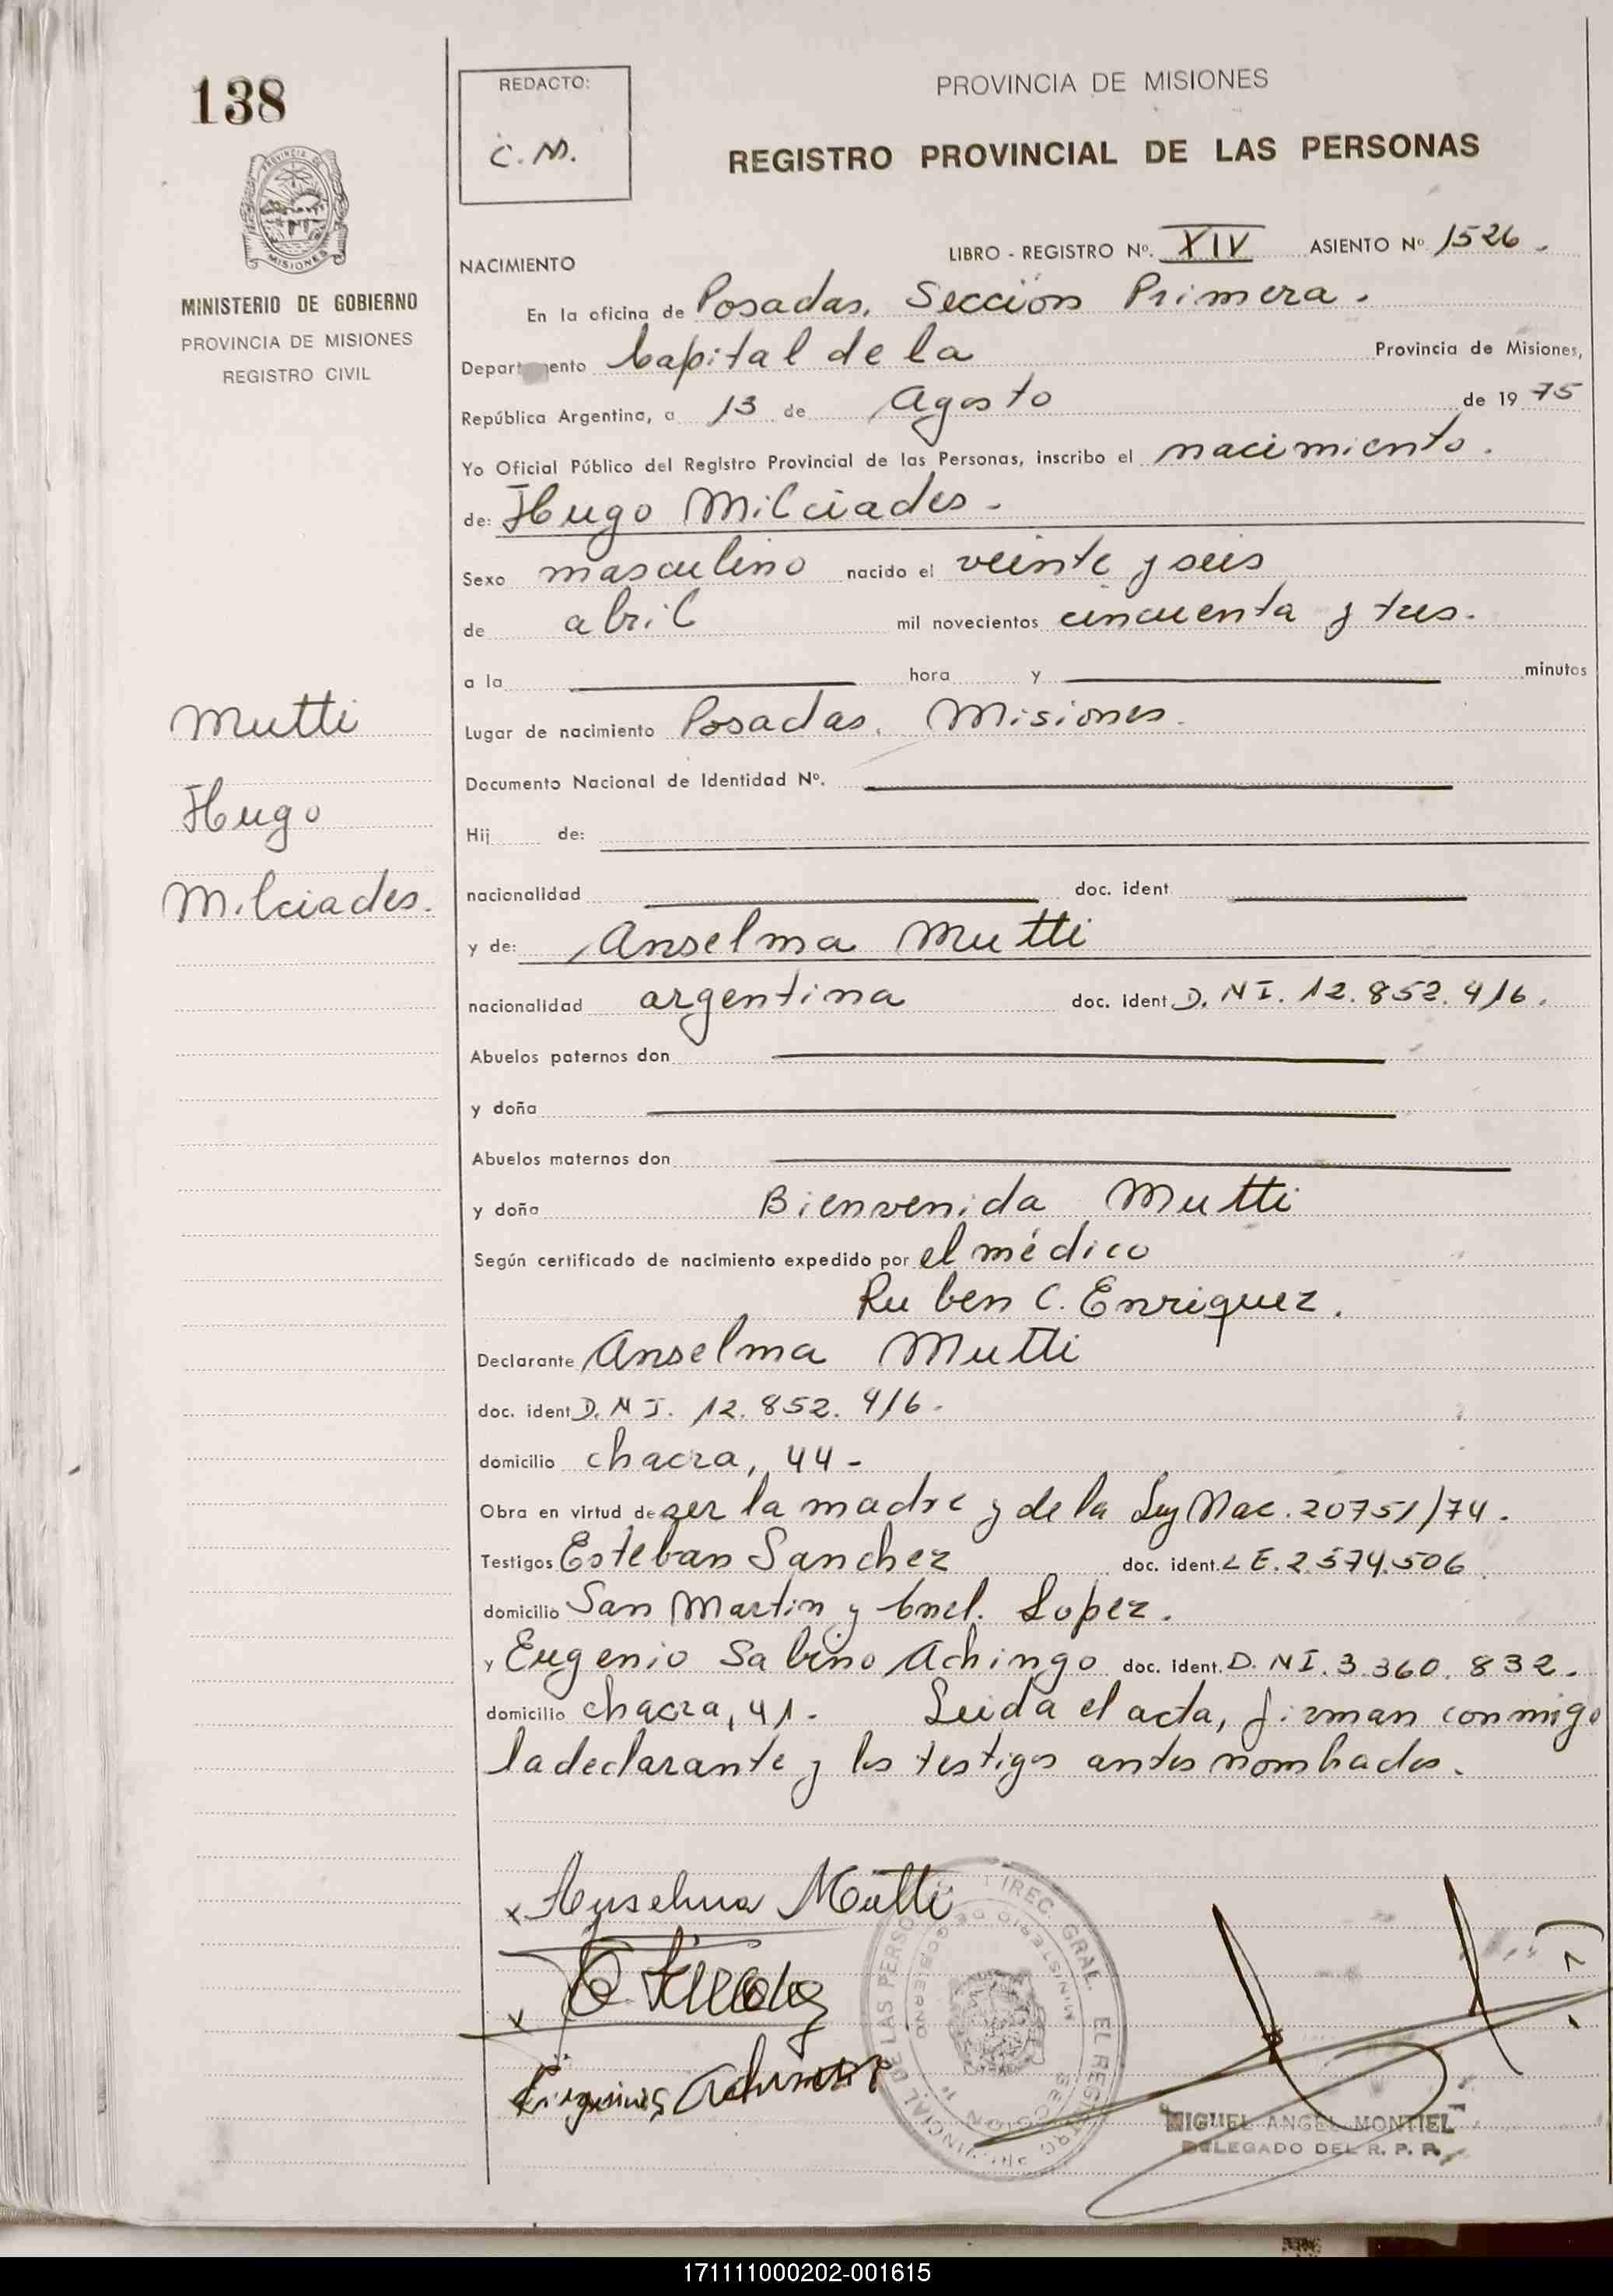 138
PROVINCIA DE
MISIONES
MINISTERIO DE GOBIERNO
PROVINCIA DE MISIONES
REGISTRO CIVIL
REDACTO:
C. M.
PROVINCIA DE MISIONES
REGISTRO PROVINCIAL DE LAS PERSONAS
LIBRO - REGISTRO Nº. XIV ASIENTO Nº 1526.
NACIMIENTO
En la oficina de Posadas, Sección Primera.
Departamento Capital de la Provincia de Misiones,
República Argentina, a 13 de Agosto de 1975
Yo Oficial Público del Registro Provincial de las Personas, inscribo el nacimiento.
de: Hugo Milciades.
Sexo masculino nacido el veinte y seis
de abril mil novecientos cincuenta y tres.
a la hora y minutos
Mutti
Hugo
Milciades.
Lugar de nacimiento Posadas, Misiones.
Documento Nacional de Identidad Nº.
Hij de:
nacionalidad doc. ident.
y de: Anselma Mutti
nacionalidad argentina doc. ident D. N I. 12.852.416.
Abuelos paternos don
y doña
Abuelos maternos don
y doña Bienvenida Mutti
Según certificado de nacimiento expedido por el médico
Ruben C. Enriquez.
Declarante Anselma Mutti
doc. ident D. N I. 12.852.416.
domicilio chacra, 44-
Obra en virtud de ser la madre y de la Ley Nac. 20751/74.
Testigos Esteban Sanchez doc. ident. L E. 2.574.506
domicilio San Martin y Cnel. Lopez.
y Eugenio Sabino Achingo doc. ident. D. N I. 3.360.832.
domicilio chacra, 41. Leida el acta, firman conmigo
la declarante y los testigos antes nombrados.
x Anselma Mutti
x
DIREC. GRAL. EL REGISTRO PROVINCIAL DE LAS PERSONAS
MINISTERIO DE GOBIERNO
SECCION 1ª
MIGUEL ANGEL MONTIEL
DELEGADO DEL R. P. P.
171111000202-001615